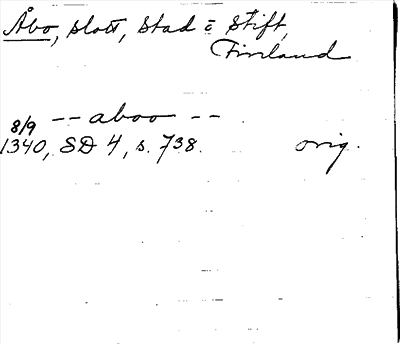 Åbo, slott, stad o Stift,
Finland
-- aboo --
8/9
1340, SD 4, s. 738. orig.